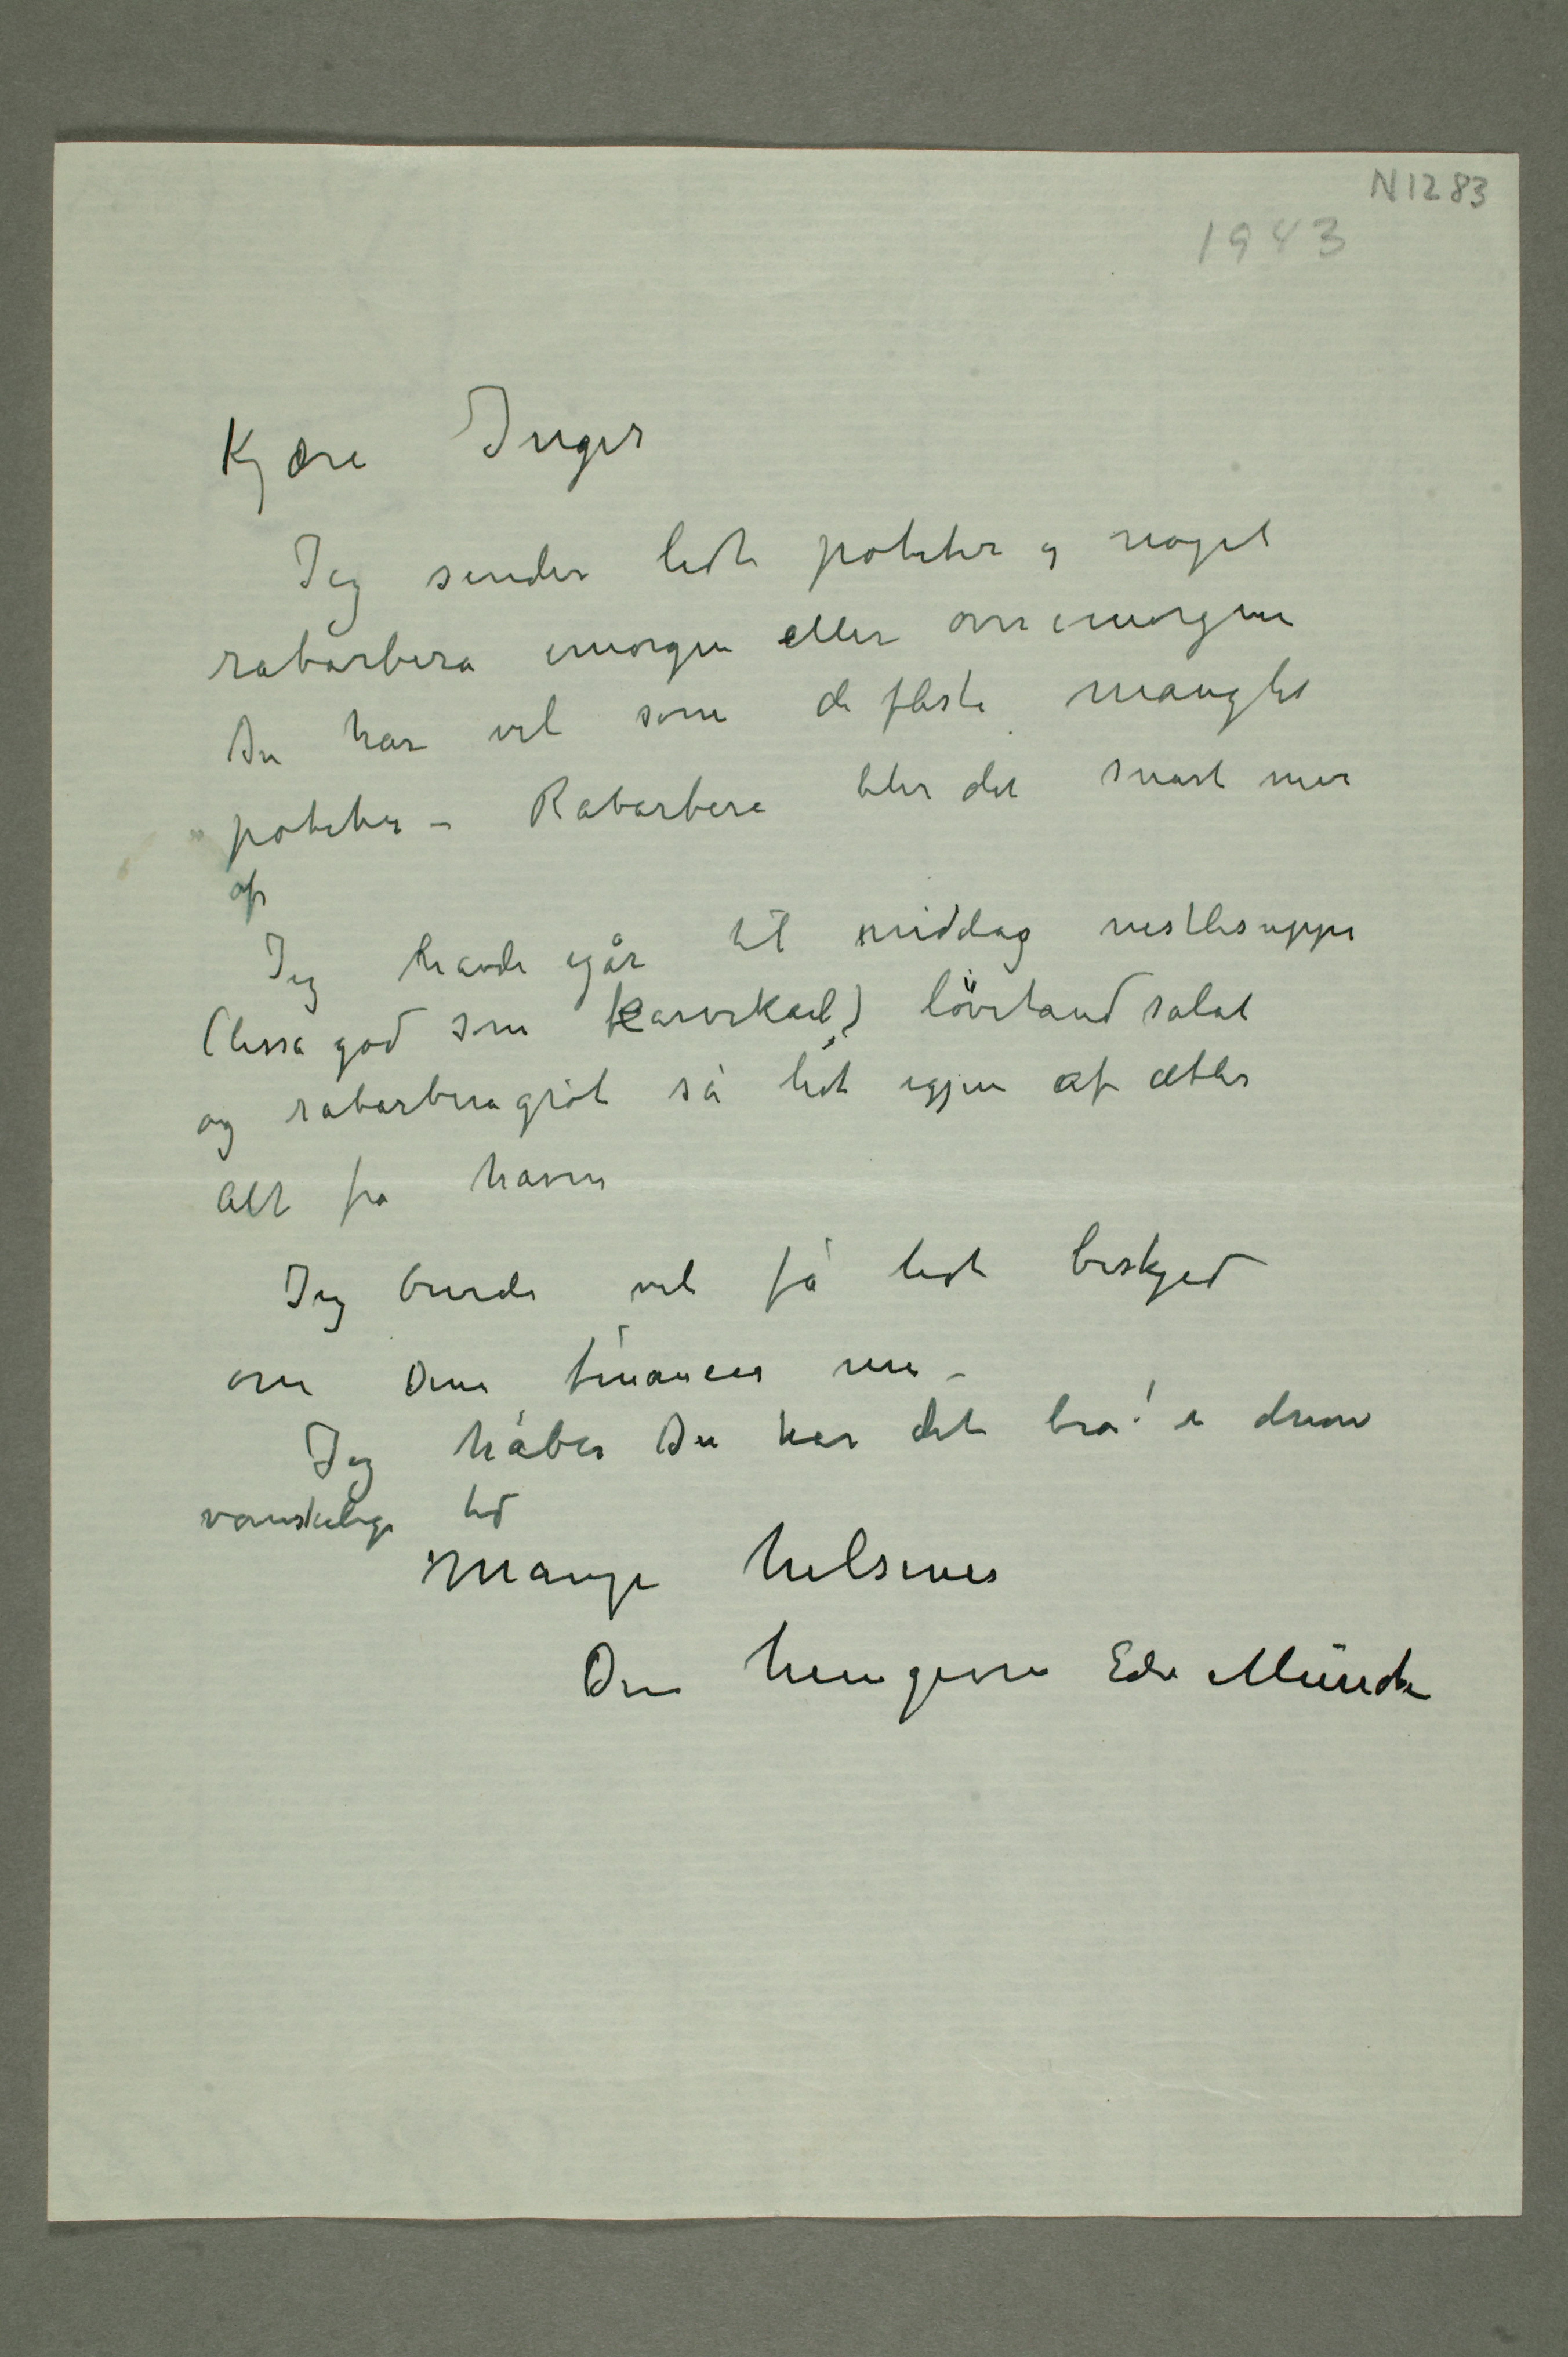 N 1283
1943
Kjære Inger
Jeg sender lidt poteter og noget
rabarbera imorgen eller overimorgen
Du har vel som de fleste manglet
poteter – Rabarbera blir det snart mer
af
Jeg havde igår til middag neslesuppe
(lissa god som karvekaal) løvetand salat
og rabarberagrøt så lidt igjen af æbler
Alt fra haven
Jeg burde vel få lidt beskjed
om Dine finanser nu –
Jeg håber Du har det bra! i denne
vanskelige tid
Mange hilsener
Din hengivne Edv Munch